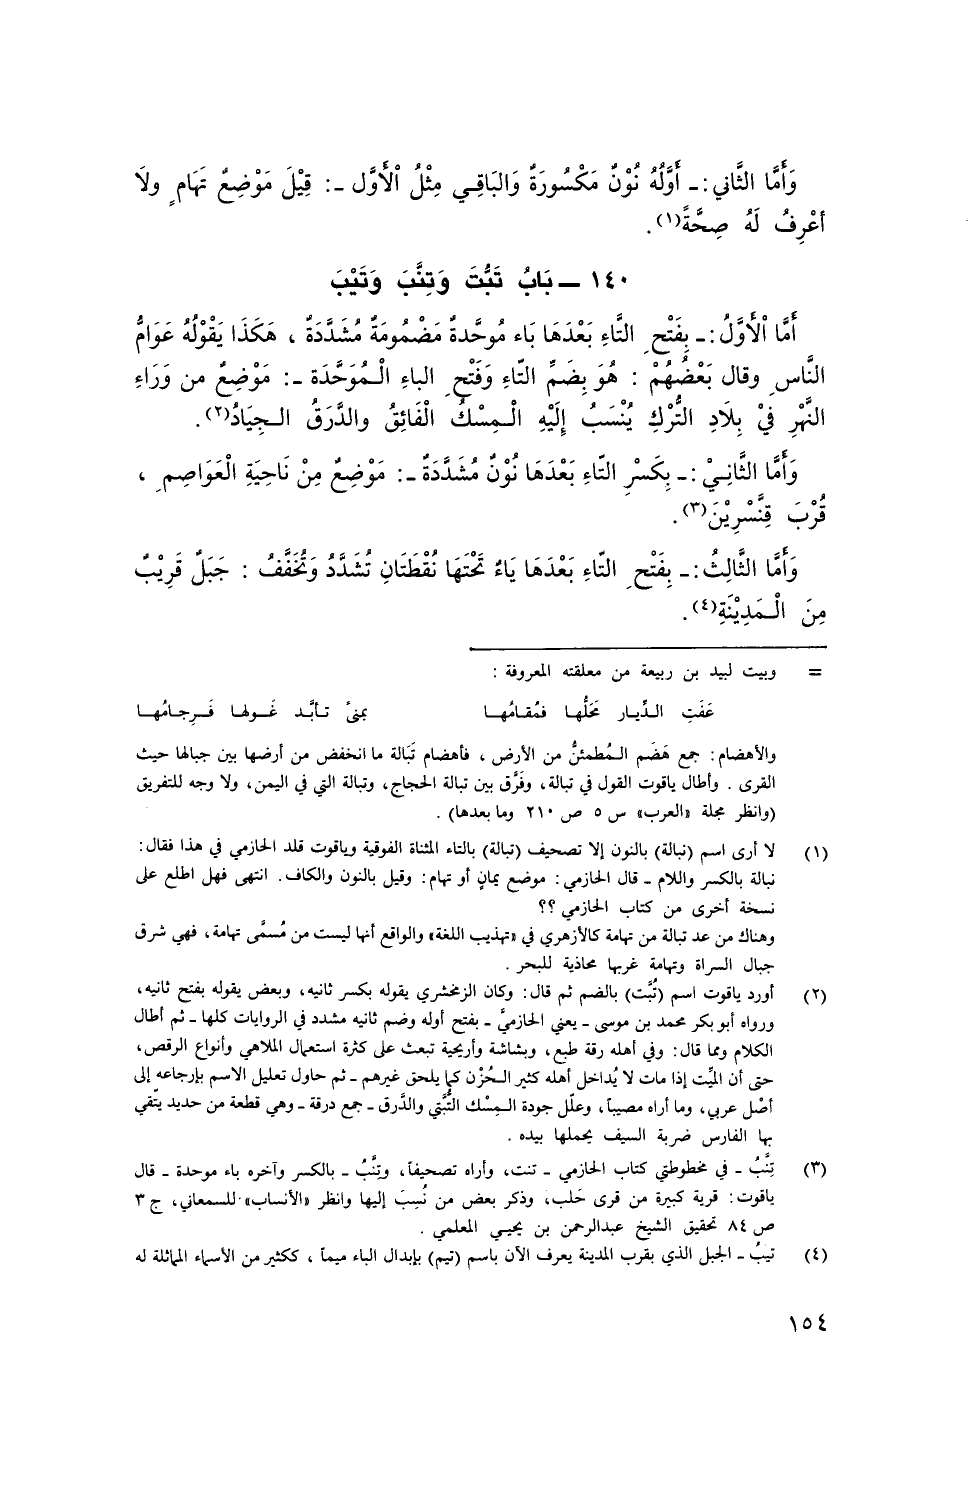 وَأَمَّا الثَّاني :ـ أَوَّلُهُ نُوْنٌ مَكْسُورَةٌ وَالبَاقِي مِثْلُ اْلأَوَّل ـ: قِيْلَ مَوْضِعٌ تَهَامٍ ولاَ
أَعْرِفُ لَهُ صِحَّةً(١) .
١٤٠ ـ بَابُ تَبُّتَ وَتِنَّبَ وَتَيْبَ
أَمَّا اْلأَوَّلُ :ـ بِفَتْحِ التَّاءِ بَعْدَهَا بَاء مُوحَّدةٌ مَضْمُومَةٌ مُشَدَّدَةٌ ، هَكَذَا يَقْوْلُهُ عَوَامُّ
النَّاسِ وقال بَعْضُهُمْ : هُوَ بِضَمِّ التّاءِ وَفَتْحِ الباءِ الْمُوَحَّدَة ـ: مَوْضِعٌ من وَرَاءِ
النَّهْرِ فيْ بِلَادِ التُّرْكِ يُنْسَبُ إِلَيْهِ الْمِسْكُ الْفَائِقُ والدَّرَقُ الْجِيَادُ(٢) .
وَأَمَّا الثَّانِيْ :ـ بِكَسْرِ التّاءِ بَعْدَهَا نُوْنٌ مُشَدَّدَةٌ ـ: مَوْضِعٌ مِنْ نَاحِيَةِ الْعَوَاصِمِ ،
قُرْبَ قِنَّسْرِيْنَ(٣) .
وَأَمَّا الثَّالِثُ :ـ بِفَتْحِ التّاءِ بَعْدَهَا يَاءٌ تَحْتَهَا نُقْطَتَانِ تُشَدَّدُ وَتُخَفَّفُ : جَبَلٌ قَرِيْبٌ
مِنَ الْمَدِيْنَةِ(٤) .
= وبيت لبيد بن ربيعة من معلقته المعروفة :
عَفَتِ الدِّيار مَحَلُّها فَمُقامُها بمنىً تأبَّد غَولها فَرِجامُها
والأهضام : جمع هَضَم المُطمئنُّ من الأرض ، فأهضام تَبَالة ما انخفض من أرضها بين جبالها حيث
القرى . وأطال ياقوت القول في تبالة ، وفَرَّق بين تبالة الحجاج ، وتبالة التي في اليمن ، ولا وجه للتفريق
(وانظر مجلة «العرب» س ٥ ص ٢١٠ وما بعدها) .
(١) لا أرى اسم (نبالة) بالنون إلا تصحيف (تبالة) بالتاء المثناة الفوقية وياقوت قلد الحازمي في هذا فقال :
نبالة بالكسر واللام ـ قال الحازمي : موضع يمانٍ أو تهام : وقيل بالنون والكاف . انتهى فهل اطلع على
نسخة أخرى من كتاب الحازمي ؟؟
وهناك من عد تبالة من تهامة كالأزهري في «تهذيب اللغة» والواقع أنها ليست من مُسمَّى تهامة ، فهي شرق
جبال السراة وتهامة غربها محاذية للبحر .
(٢) أورد ياقوت اسم (تُبَّت) بالضم ثم قال : وكان الزمخشري يقوله بكسر ثانيه ، وبعض يقوله بفتح ثانيه ،
ورواه أبو بكر محمد بن موسى ـ يعني الحازميَّ ـ بفتح أوله وضم ثانيه مشدد في الروايات كلها ـ ثم أطال
الكلام ومما قال : وفي أهله رقة طبع ، وبشاشة وأريحية تبعث على كثرة استعمال الملاهي وأنواع الرقص ،
حتى أن الميِّت إذا مات لا يُداخل أهله كثير الحُزْن كما يلحق غيرهم ـ ثم حاول تعليل الاسم بإرجاعه إلى
أصْل عربي ، وما أراه مصيباً ، وعلّل جودة المِسْك التُّبَّتي والدَّرق ـ جمع درقة ـ وهي قطعة من حديد يتّقي
بها الفارس ضربة السيف يحملها بيده .
(٣) تِنَّبُ ـ في مخطوطتي كتاب الحازمي ـ تنت ، وأراه تصحيفاً ، وتِنَّبُ ـ بالكسر وآخره باء موحدة ـ قال
ياقوت : قرية كبيرة من قرى حَلب ، وذكر بعض من نُسِبَ إليها وانظر «الأنساب» للسمعاني ، ج ٣
ص ٨٤ تحقيق الشيخ عبدالرحمن بن يحيى المعلمي .
(٤) تَيبُ ـ الجبل الذي بقرب المدينة يعرف الآن باسم (تيم) بإبدال الباء ميماً ، ككثير من الأسماء المماثلة له
١٥٤